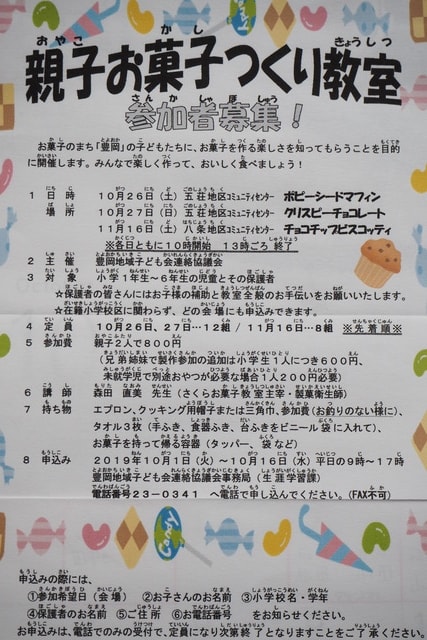 親子お菓子つくり教室
参加者募集！
お菓子のまち「豊岡」の子どもたちに、お菓子を作る楽しさを知ってもらうことを目的
に開催します。みんなで楽しく作って、おいしく食べましょう！
1 日時 10月26日(土) 五荘地区コミュニティセンター ポピーシードマフィン
場所 10月27日(日) 五荘地区コミュニティセンター クリスピーチョコレート
11月16日(土) 八条地区コミュニティセンター チョコチップビスコッティ
※各日ともに10時開始 13時ごろ終了
2 主催 豊岡地域子ども会連絡協議会
3 対象 小学1年生～6年生の児童とその保護者
☆保護者の皆さんにはお子様の補助と教室全般のお手伝いをお願いいたします。
☆在籍小学校区に関わらず、どの会場にも申込みできます。
4 定員 10月26日、27日…12組 / 11月16日…8組 ※先着順※
5 参加費 親子2人で800円
(兄弟姉妹で製作参加の追加は小学生1人につき600円、
未就学児で別途おやつが必要な場合1人200円必要)
6 講師 森田 直美 先生 (さくらお菓子教室主宰・製菓衛生師)
7 持ち物 エプロン、クッキング用帽子または三角巾、参加費(お釣りのない様に)、
タオル3枚 (手ふき、食器ふき、台ふきをビニール袋に入れて)、
お菓子を持って帰る容器 (タッパー、袋など)
8 申込み 2019年10月1日(火)～10月16日(水) 平日の9時～17時
豊岡地域子ども会連絡協議会事務局 (生涯学習課)
電話番号23－0341 へ電話で申し込んでください。(FAX不可)
申込みの際には、
①参加希望日(会場) ②お子さんのお名前 ③小学校名・学年
④保護者のお名前 ⑤ご住所 ⑥お電話番号 をお知らせください。
お申込みは、電話でのみの受付で、定員になり次第終了となりますことをご了承ください。